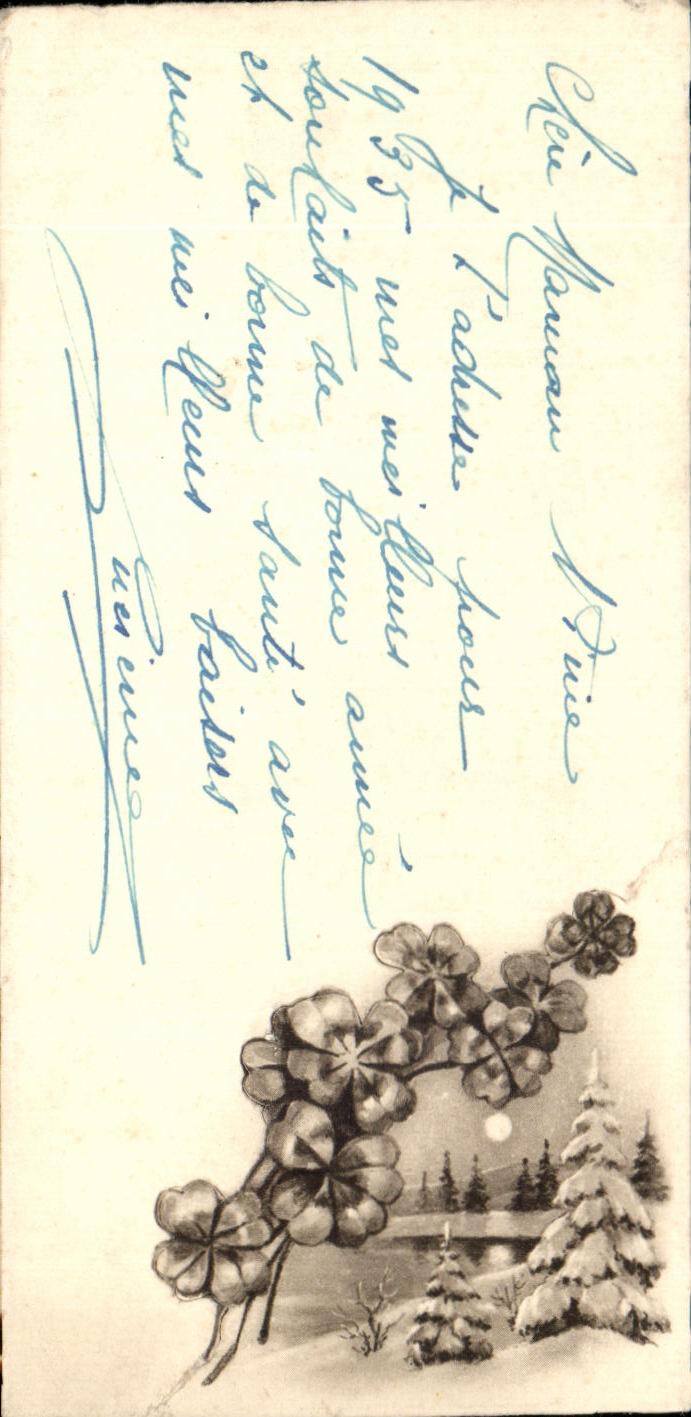 Chère Maman
Je t'adresse pour
1935 mes meilleurs
souhaits de bonne année
et de bonne santé avec
mes meilleurs baisers